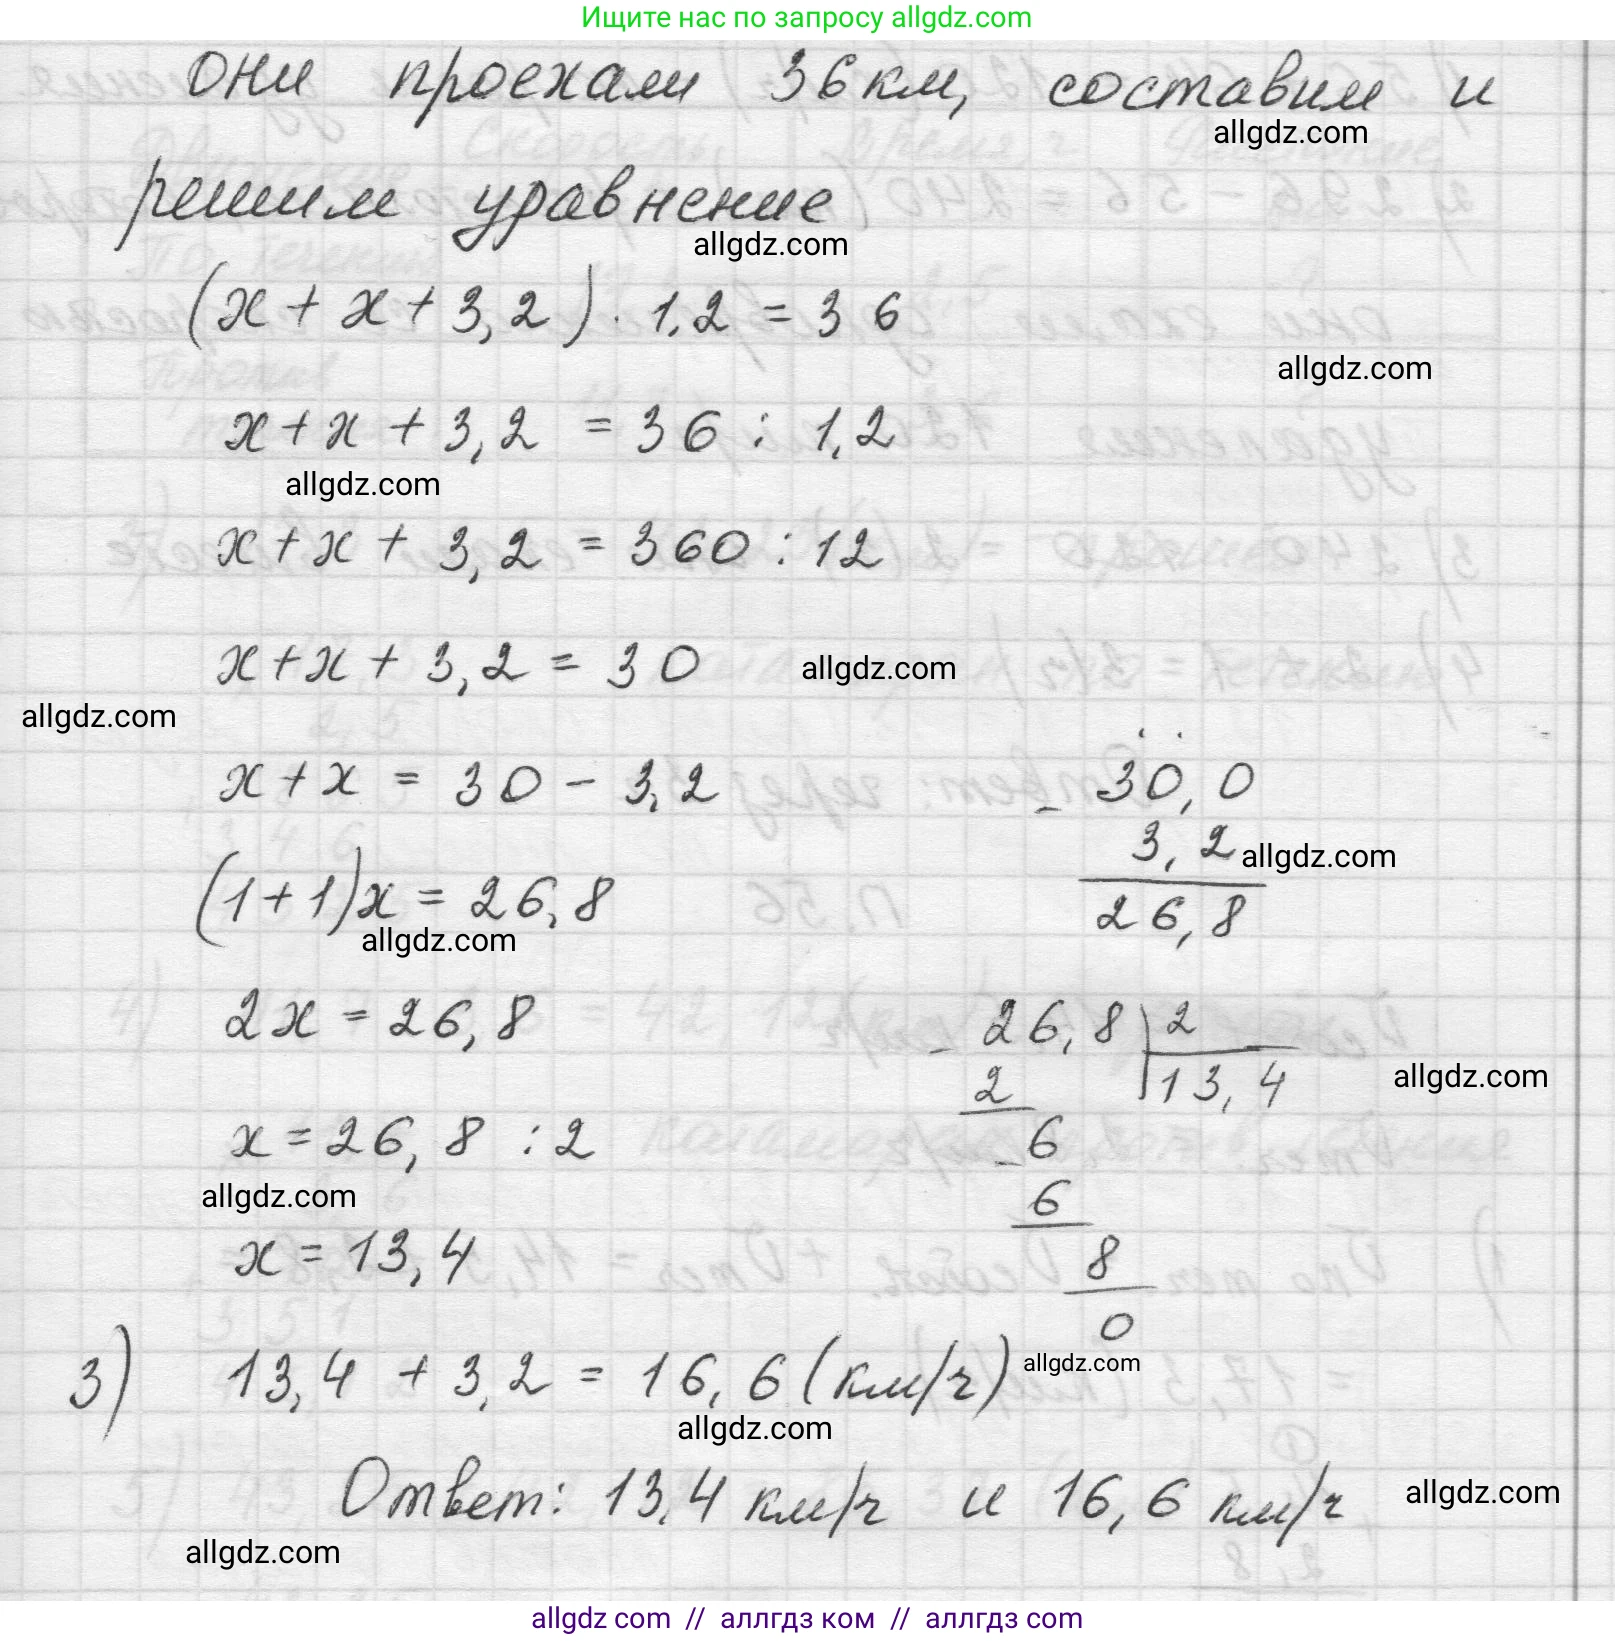 Ищите нас по запросу allgdz.com
они проехали 36 км, составим и
allgdz.com
решим уравнение
allgdz.com
(x + x + 3,2) · 1,2 = 36
allgdz.com
x + x + 3,2 = 36 : 1,2
allgdz.com
x + x + 3,2 = 360 : 12
x + x + 3,2 = 30
allgdz.com
allgdz.com
x + x = 30 - 3,2
- 30,0
3,2
allgdz.com
26,8
(1 + 1)x = 26,8
allgdz.com
2x = 26,8
- 26,8 | 2
2 | 13,4
allgdz.com
- 6
6
8
0
x = 26,8 : 2
allgdz.com
x = 13,4
3) 13,4 + 3,2 = 16,6 (км/ч)
allgdz.com
allgdz.com
Ответ: 13,4 км/ч и 16,6 км/ч
allgdz.com
allgdz.com
allgdz com // аллгдз ком // аллгдз com